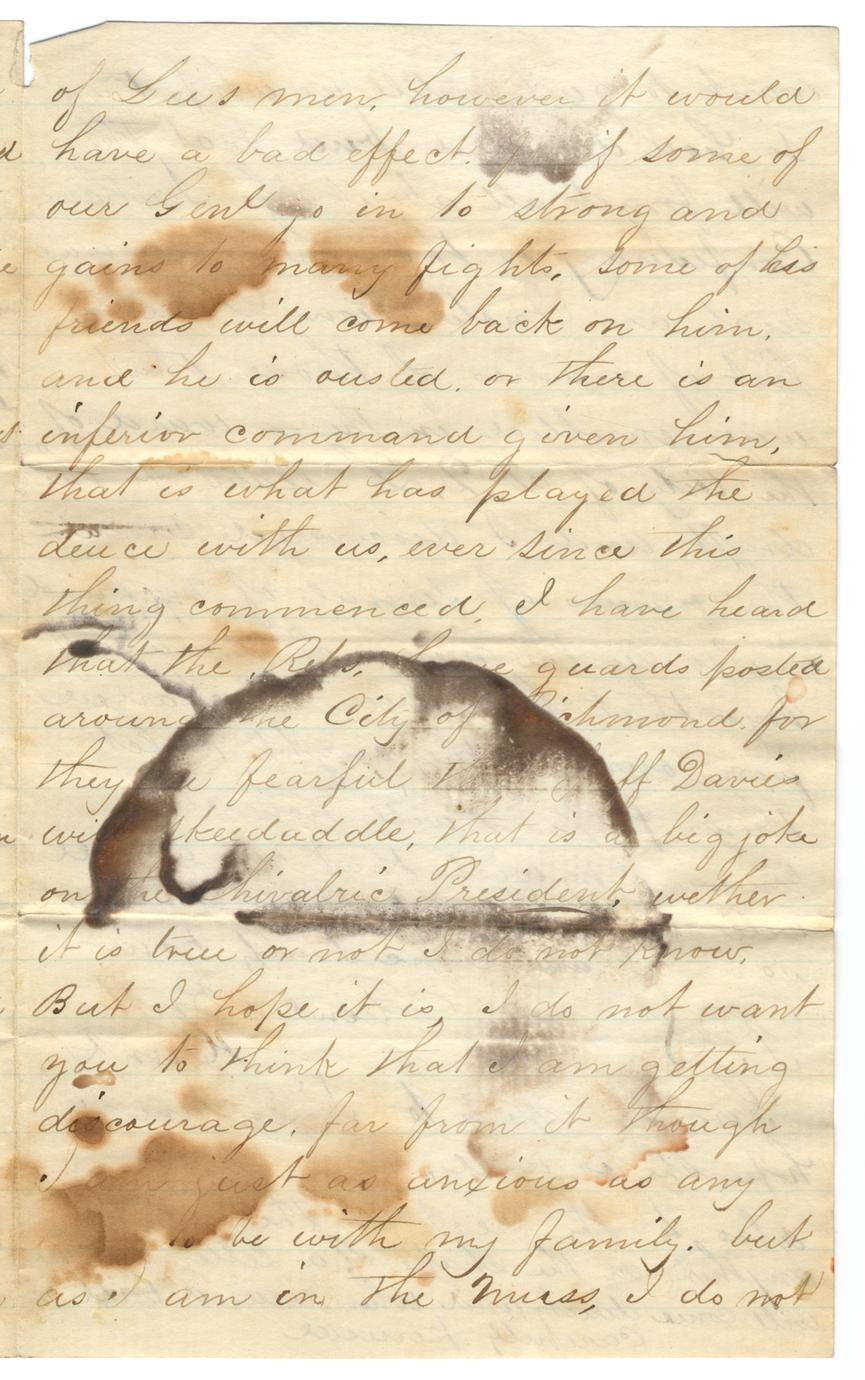 of Lees men, however it would
have a bad effect. if some of
our Genl go in to strong and
gains to many fights, some of his
friends will come back on him,
and he is ousted. or there is an
inferior command given him,
that is what has played the
deuce with us, ever since this
thing commenced, I have heard
that the Rebs, have guards posted
around the City of Richmond. for
they are fearful that Jeff Davies
will skeedaddle, that is a big joke
on the Chivalric President, wether
it is true or not I do not know,
But I hope it is, I do not want
you to think that I am getting
discourage, far from it though
I am just as anxious as any
be with my family. but
as I am in the muss, I do not